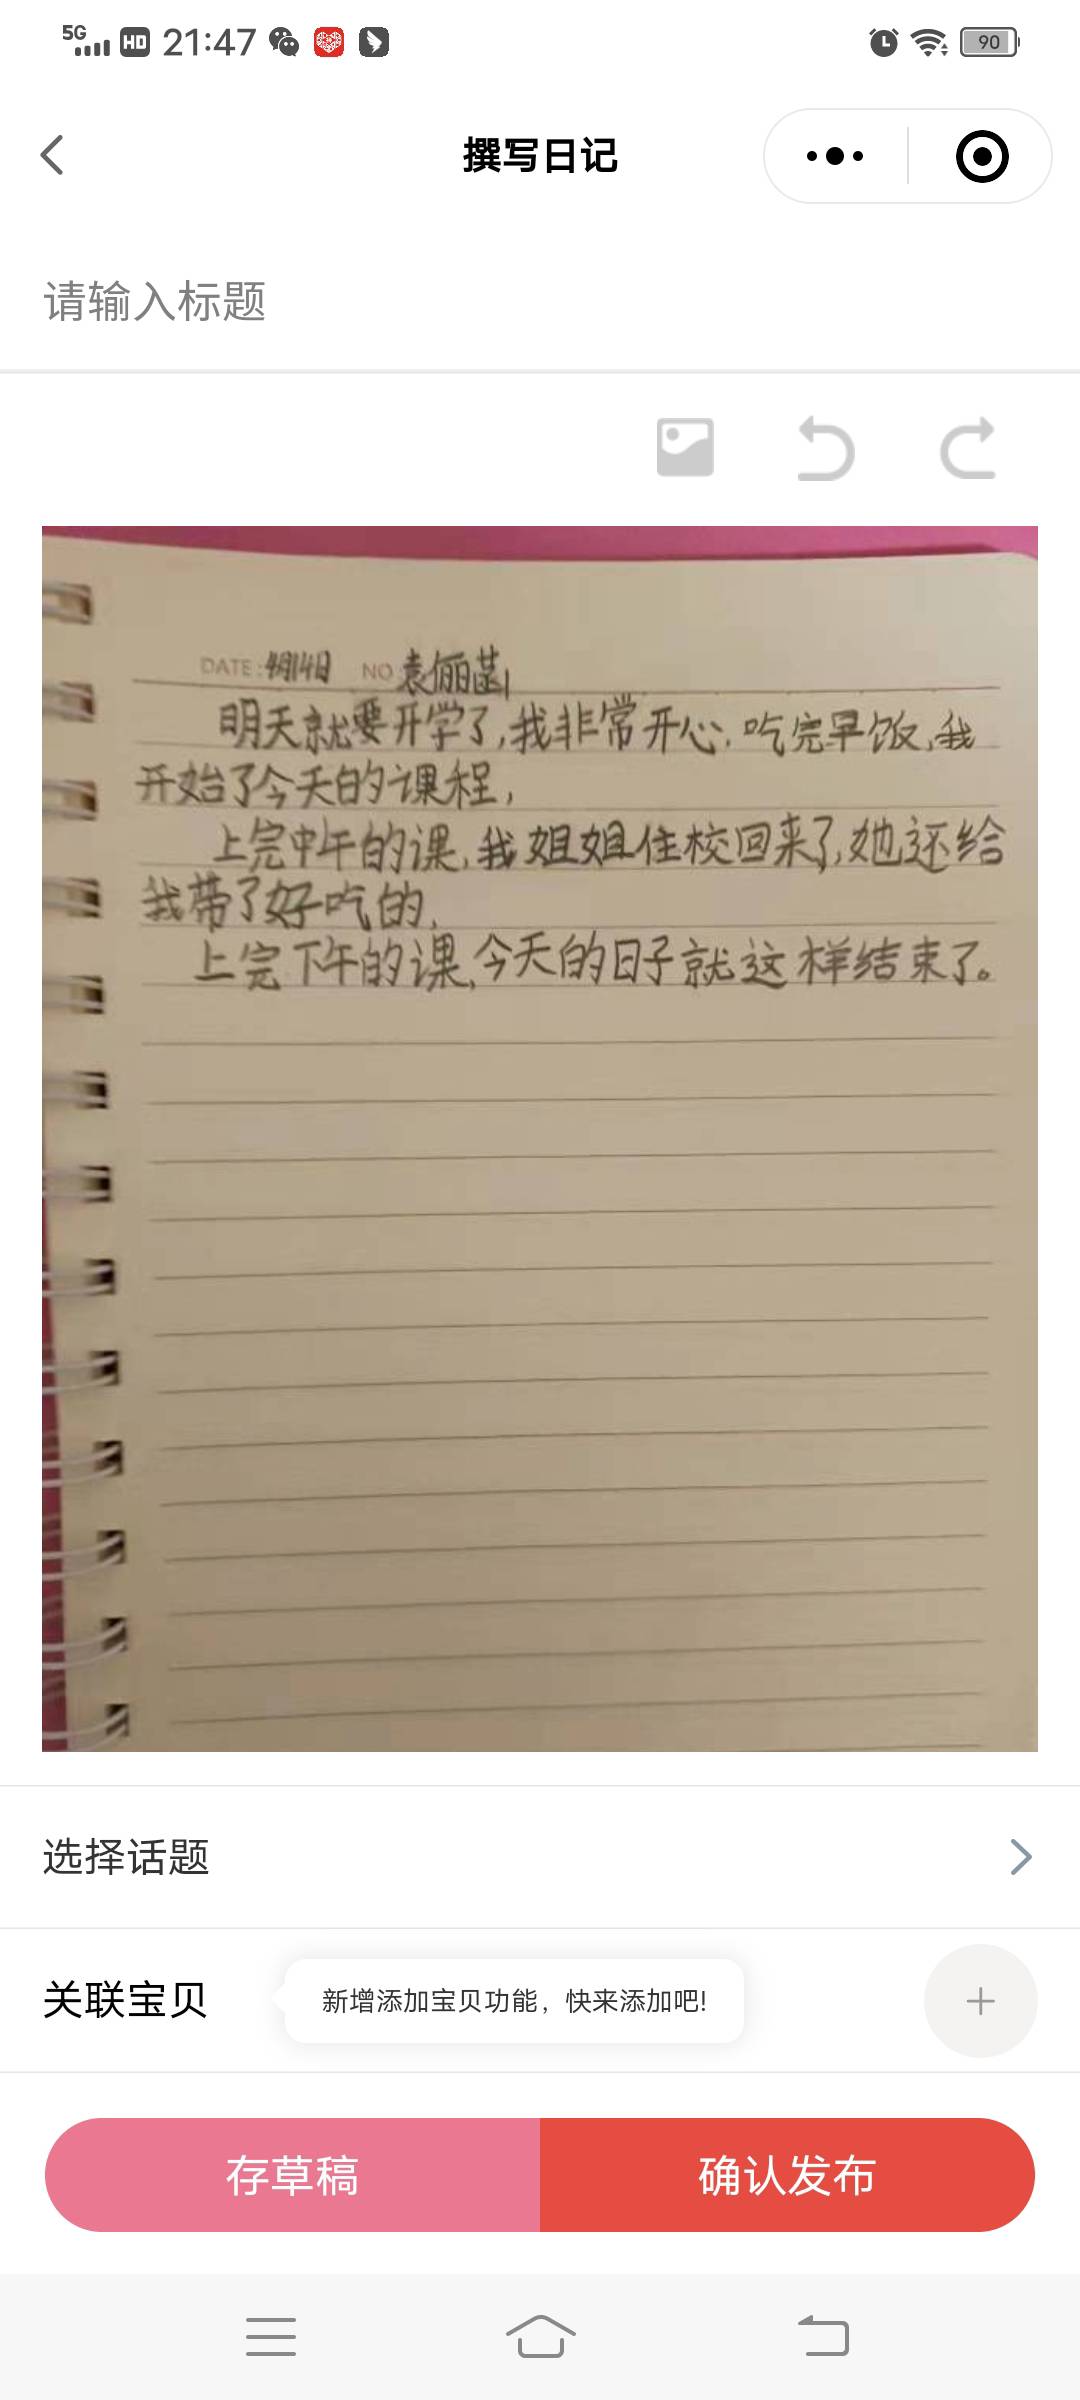 5G HD 21:47 90
撰写日记
请输入标题
DATE: 4月14日 NO 袁俪菡
明天就要开学了,我非常开心.吃完早饭,我
开始了今天的课程,
上完中午的课,我姐姐住校回来了,她还给
我带了好吃的,
上完下午的课,今天的日子就这样结束了。
选择话题
关联宝贝
新增添加宝贝功能，快来添加吧!
存草稿
确认发布